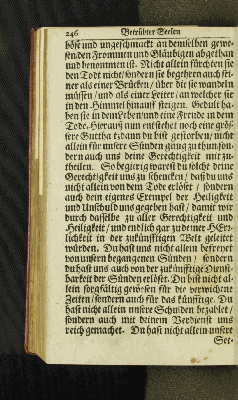 246 Betrübter Seelen
böse und ungeschmackt an demselben gewe-
sen/den Frommen und Gläubigen abgethan
und benommen ist. Nicht allein fürchten sie
den Todt nicht/sondern sie begehren auch sei-
ner als einer Brücken/ über die sie wandeln
müssen/ und als einer Leiter/an welcher sie
in den Himmel hinauff steigen. Gedult ha-
ben sie in dem Leben/und eine Freude in dem
Tode. Hierauß nun entstehet noch eine grös-
sere Gutthat; dann du bist gestorben/ nicht
allein für unsere Sünden gnug zu thun/son-
dern auch uns deine Gerechtigkeit mit zu-
theilen. So begierig warest du solche deine
Gerechtigkeit uns zu schencken/ daß du uns
nicht allein von dem Tode erlöset / sondern
auch dein eigenes Exempel der Heiligkeit
und Unschuld uns gegeben hast/ damit wir
durch dasselbe zu aller Gerechtigkeit und
Heiligkeit/ und endlich gar zu deiner HErr-
lichkeit in der zukünfftigen Welt geleitet
würden. Du hast uns nicht allein befreyet
von unsern begangenen Sünden/ sondern
du hast uns auch von der zukünfftige Dienst-
barkeit der Sünden erlöset. Du bist nicht al-
lein sorgfältig gewesen für die verwichene
Zeiten/sondern auch für das künfftige. Du
hast nicht allein unsere Schulden bezahlet/
sondern auch mit deinem Verdienst uns
reich gemachet. Du hast nicht allein unsere
See-